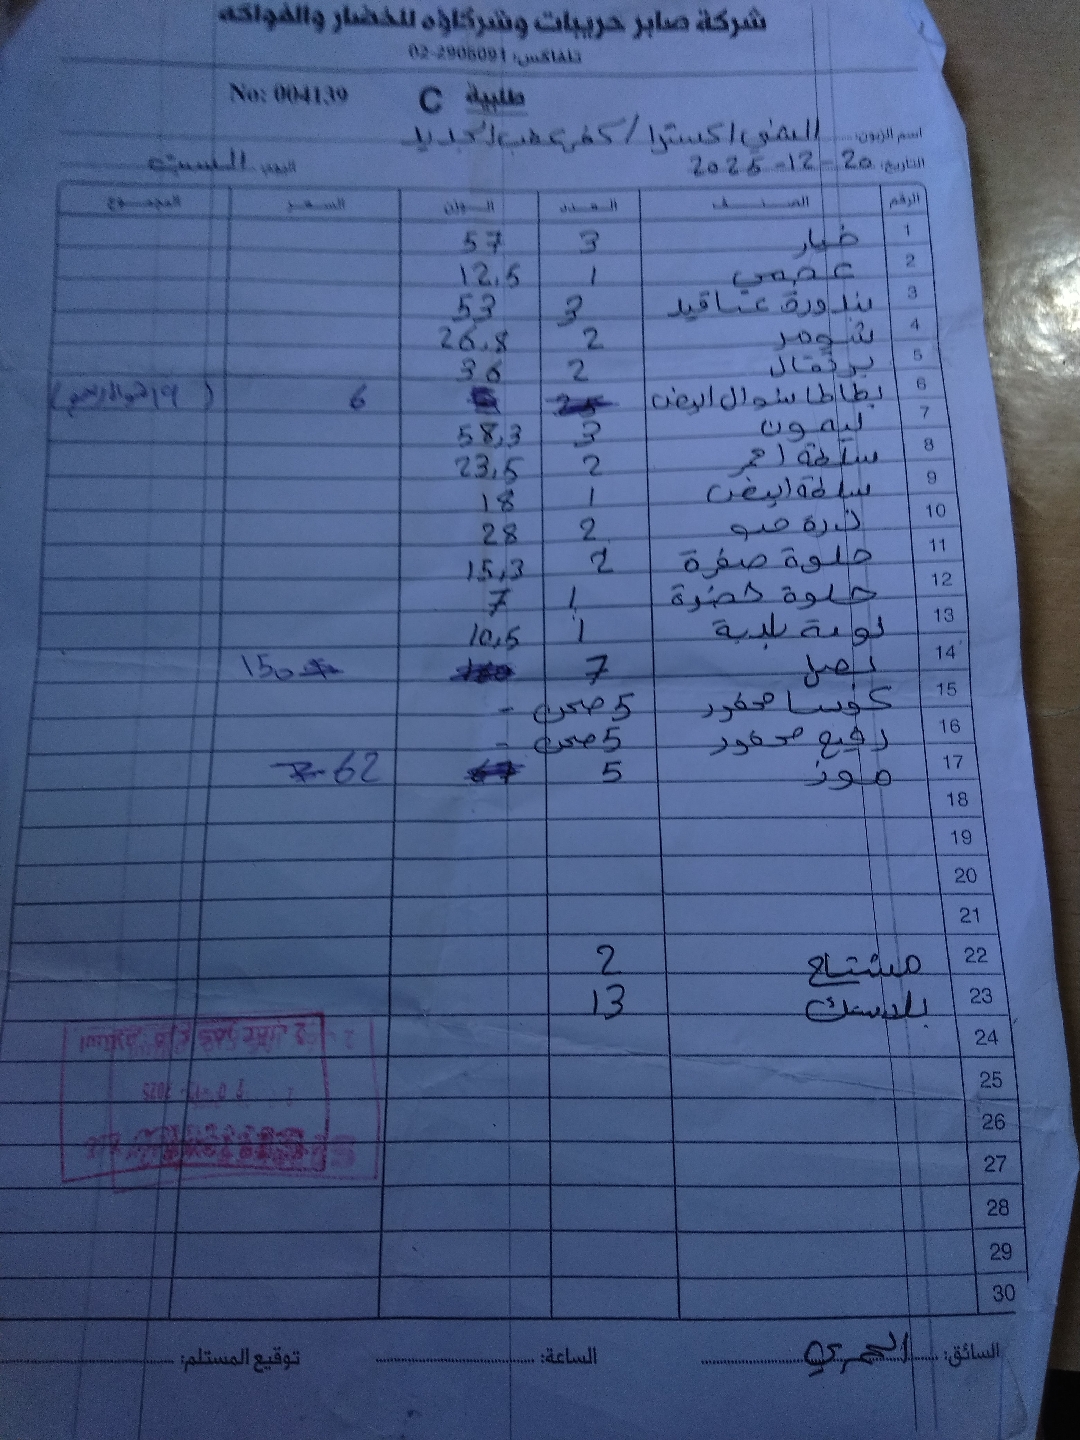 شركة صابر حريبات وشركاؤه للخضار والفواكه
تلفاكس: 02-2908091
No: 004139 C طلبية
اسم الزبون: اكسترا / كفر عقب الجديد
التاريخ: 20-12-2025 اليوم: السبت
الرقم الصنف العدد الوزن السعر المجموع
1 خيار 3 57
2 1 12,5
3 بندورة عناقيد 3 53
4 شومر 2 26,8
5 برتقال 2 36
6 بطاطا شوال ابيض 6
7 ليمون 3 58,3
8 سلطة احمر 2 23,5
9 سلطة ابيض 1 18
10 ذرة 2 28
11 حلوة صفرة 2 15,3
12 حلوة خضرة 1 7
13 لوبية بلدية 1 10,5
14 بصل 7 150
15 كوسا محفور 5 صحن -
16 رفيع محفور 5 صحن -
17 موز 5 62
18
19
20
21
22 مشتاح 2
23 بلاستك 13
24
25
26
27
28
29
30
السائق: الساعة: توقيع المستلم: